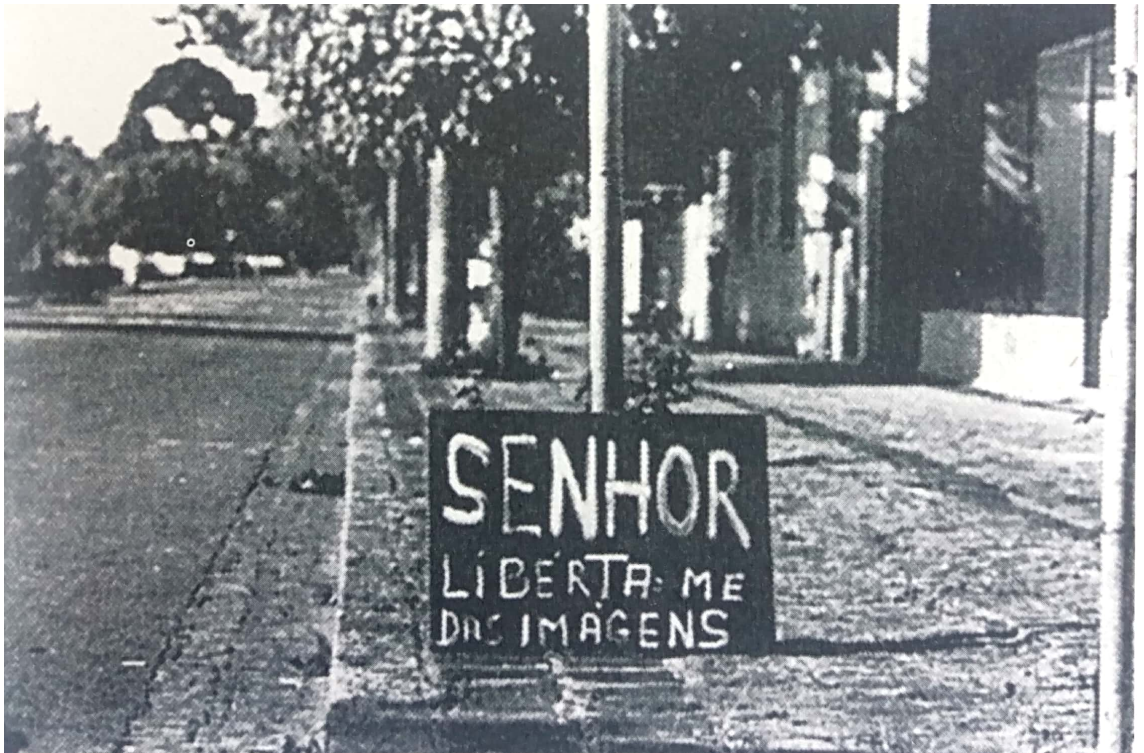 SENHOR
LIBERTA-ME
DAS IMAGENS